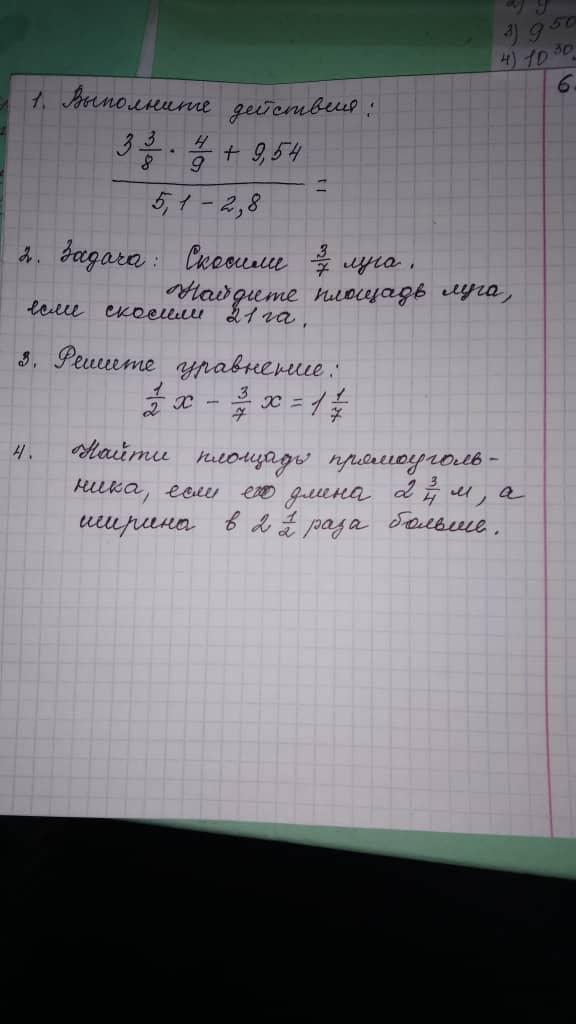 2) 9
3) 9 50
4) 10 30
6.
1. Выполните действия:
3 3/8 · 4/9 + 9,54
5,1 - 2,8 =
2. Задача: Скосили 3/7 луга.
Найдите площадь луга,
если скосили 21 га.
3. Решите уравнение:
1/2 x - 3/7 x = 1 1/7
4. Найти площадь прямоуголь-
ника, если его длина 2 3/4 м, а
ширина в 2 1/2 раза больше.